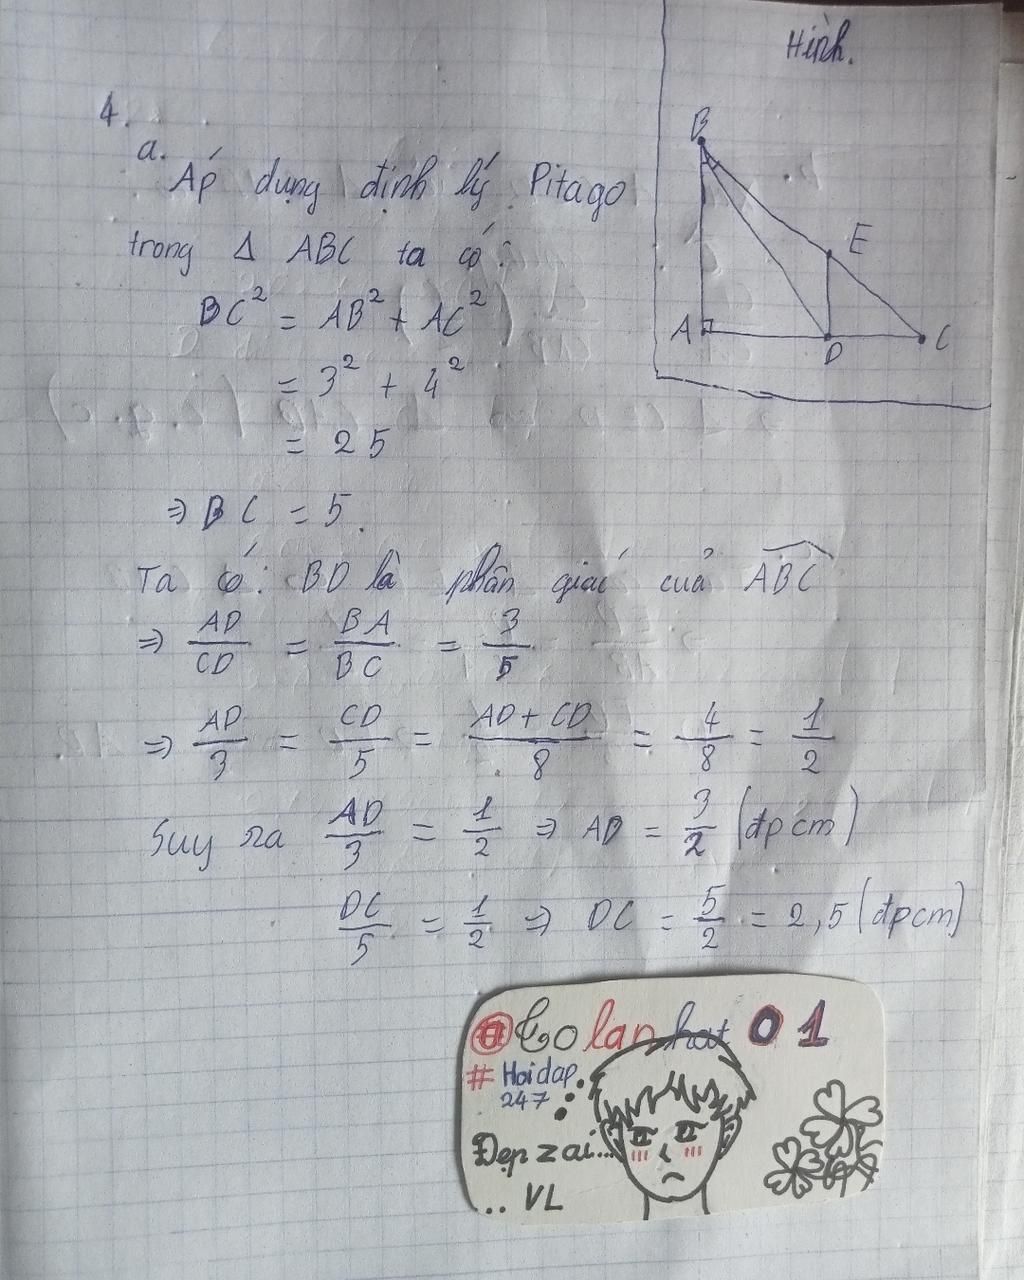 Hình.
B
E
A
D
C
4.
a.
Áp dụng định lý Pitago
trong Δ ABC ta có:
BC² = AB² + AC²
= 3² + 4²
= 25
⇒ BC = 5.
Ta có: BD là phân giác của \widehat{ABC}
⇒ AD/CD = BA/BC = 3/5
⇒ AD/3 = CD/5 = AD + CD/8 = 4/8 = 1/2
Suy ra AD/3 = 1/2 ⇒ AD = 3/2 (đpcm)
DC/5 = 1/2 ⇒ DC = 5/2 = 2,5 (đpcm)
lanhat01
# Hoidap
247
Đẹp zai...
.. VL